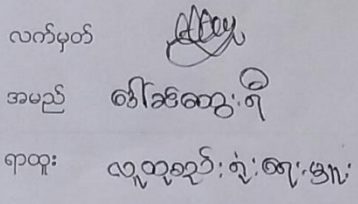 လက်မှတ်
အမည် ဒေါ်ခင်ထွေးရီ
ရာထူး လူထုစည်းရုံးရေးမှူး